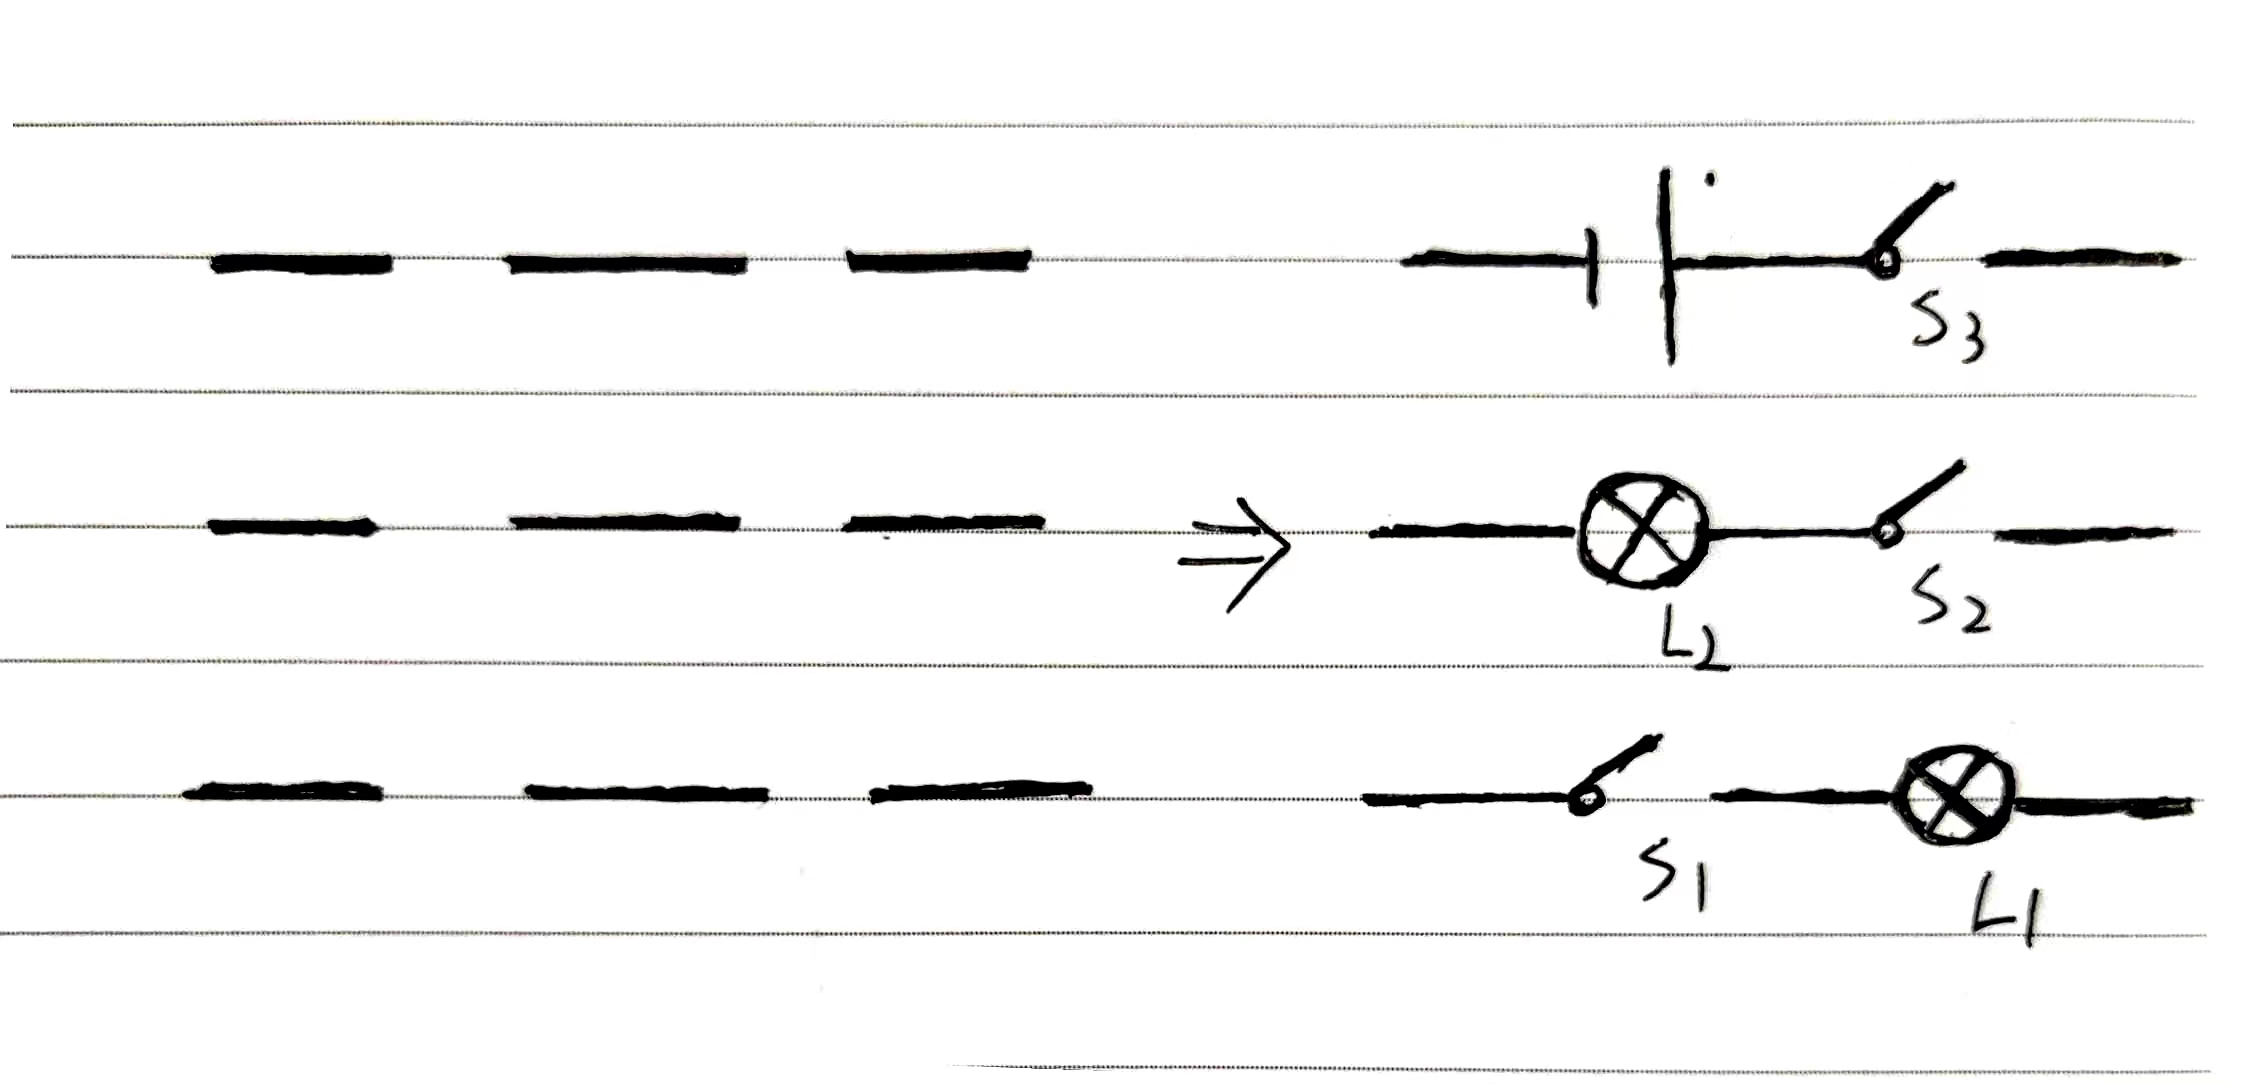 S3
L2 S2
S1 L1